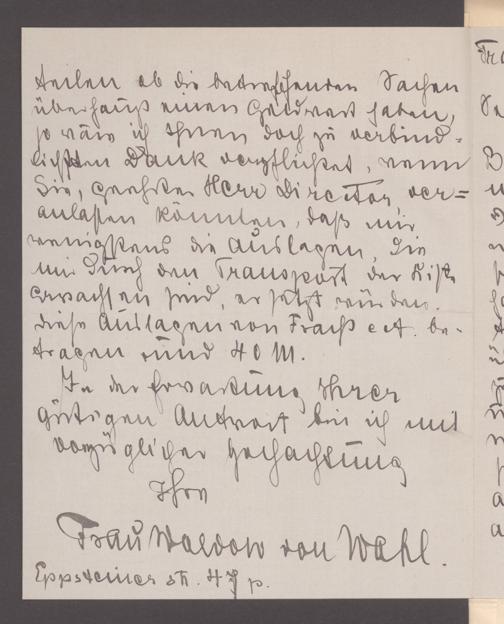 teilen ob die betreffenden Sachen
überhaupt einen Geldwert haben,
so wäre ich Ihnen doch zu verbind-
lichsten Dank verpflichtet, wenn
Sie, geehrter Herr Director, ver=
anlaßen könnten, daß mir
wenigstens die Auslagen, die
mir durch den Transport der Kiste
erwachsen sind, ersetzt würden.
Diese Auslagen von Fracht ect. be-
tragen rund 40 M.
In der Erwartung Ihrer
gütigen Antwort bin ich mit
vorzüglicher Hochachtung
Ihre
Frau Waldow von Wahl.
Eppsteiner str. 47 p.